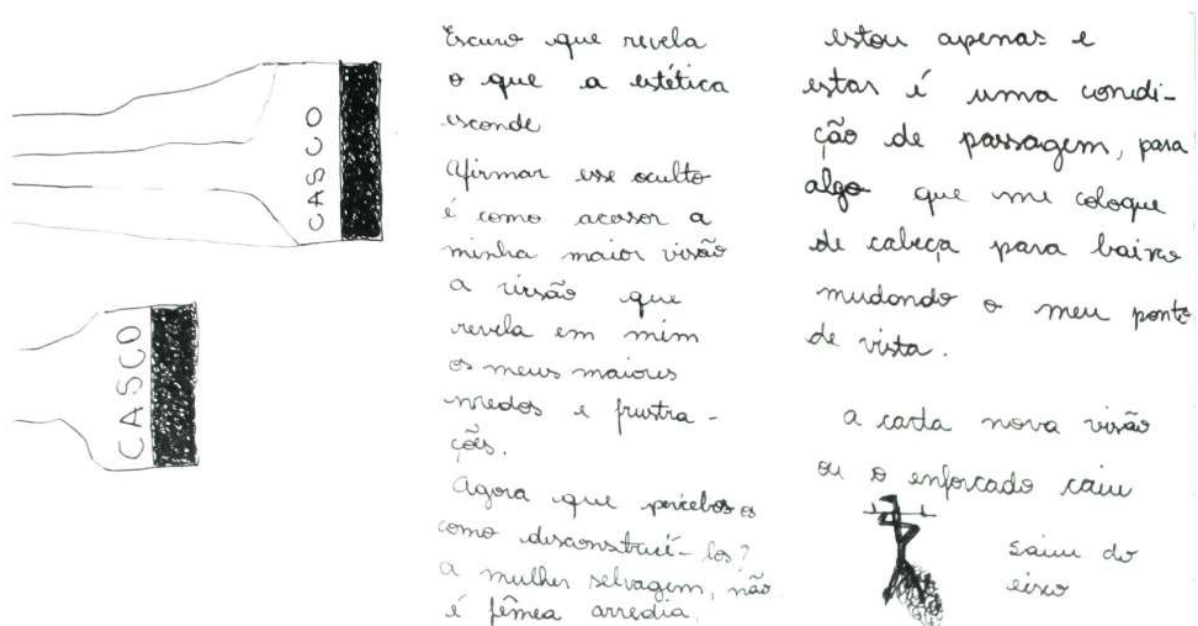 CASCO
CASCO
Escuro que revela
o que a estética
esconde
Afirmar esse oculto
é como acessar a
minha maior visão
a visão que
revela em mim
os meus maiores
medos e frustra-
ções.
Agora que percebos os
como desconstruí-los?
a mulher selvagem, não
é fêmea arredia.
estou apenas e
estar é uma condi-
ção de passagem, para
algo que me coloque
de cabeça para baixo
mudando o meu ponto
de vista.
a carta nova visão
ou o enforcado caiu
saiu do
eixo